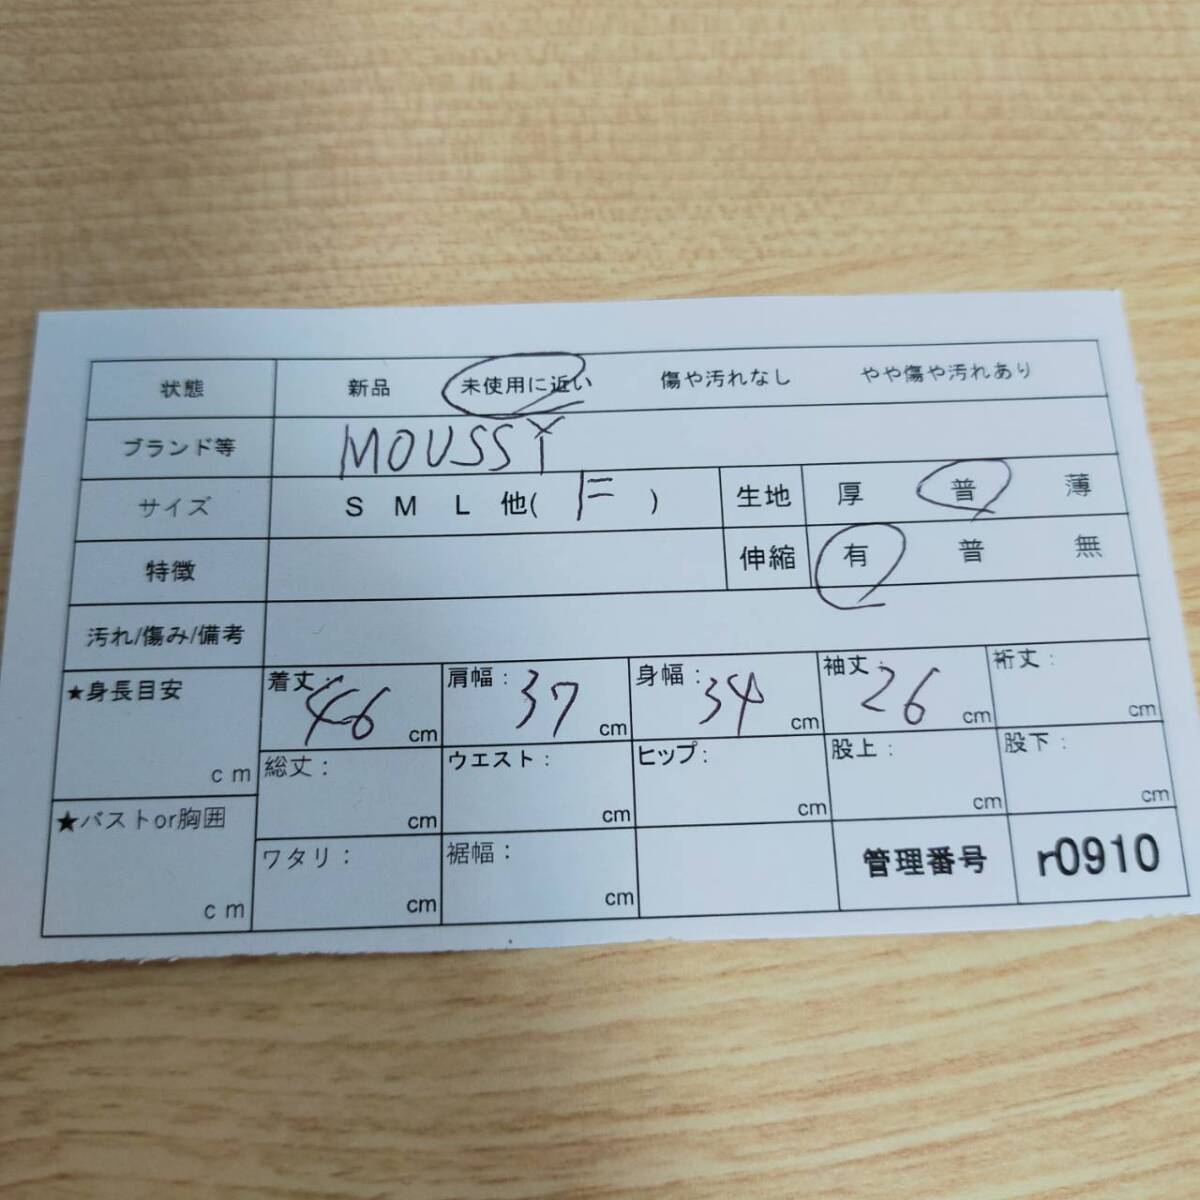 状態 新品 未使用に近い 傷や汚れなし やや傷や汚れあり
ブランド等 MOUSSY
サイズ S M L 他( F ) 生地 厚 普 薄
特徴 伸縮 有 普 無
汚れ/傷み/備考
★身長目安 cm
着丈: 46 cm 肩幅: 37 cm 身幅: 34 cm 袖丈: 26 cm 裄丈: cm
総丈: cm ウエスト: cm ヒップ: cm 股上: cm 股下: cm
★バストor胸囲 cm
ワタリ: cm 裾幅: cm 管理番号 r0910